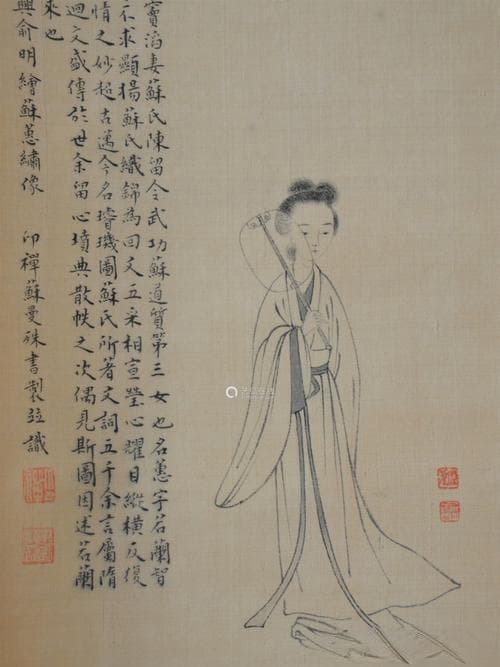 竇滔妻蘇氏陳留令武功蘇道質第三女也名蕙字若蘭智
不求顯揚蘇氏織錦為回文五采相宣瑩心耀目縱橫反復
情之妙超古邁今名璿璣圖蘇氏所著文詞五千余言屬隋
迴文盛傳於世余留心墳典散帙之次偶見斯圖因述若蘭
來也
興俞明繪蘇蕙繡像 印禪蘇曼殊書製並識